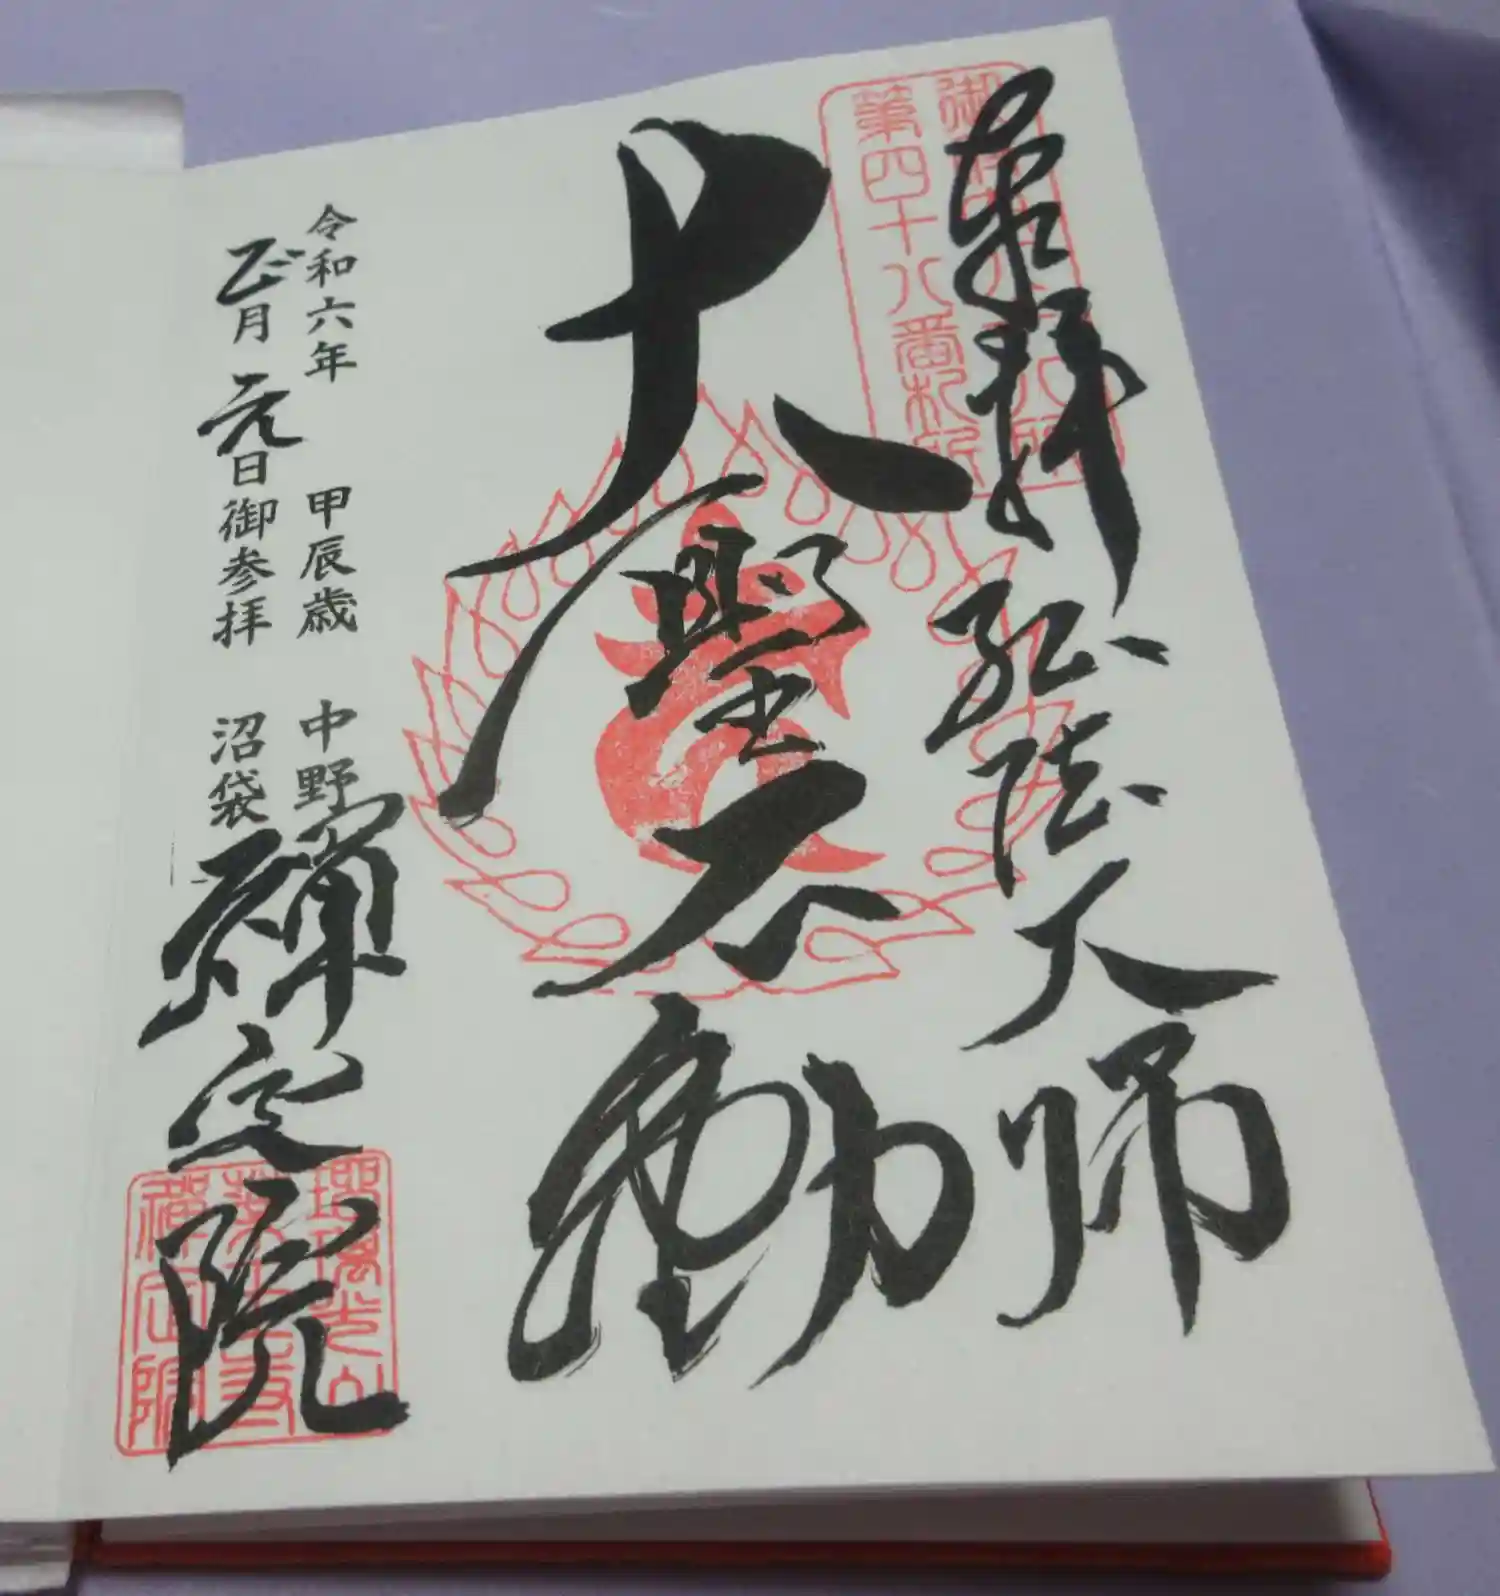 奉拝 弘法大師
第四十八番札所
大聖不動
令和六年 甲辰歳 中野
正月元日御参拝 沼袋
禅定院
瑠璃光山
薬王寺
禅定院